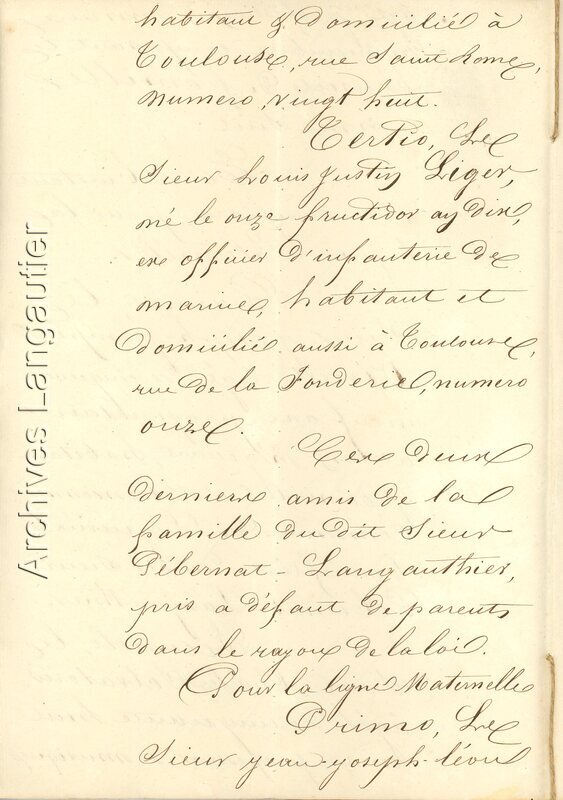 habitant & domicilié à
Toulouse, rue Saint Rome,
numero, vingt huit.
Tertio, Le
Sieur Louis Justin Liger,
né le onze fructidor an dix,
ex officier d'infanterie de
marine, habitant et
domicilié aussi à Toulouse,
rue de la Fonderie, numero
onze.
Ces deux
derniers amis de la
famille du dit Sieur
Pébernat-Langauthier,
pris a défaut de parents
dans le rayon de la loi.
Pour la ligne Maternelle
Primo, Le
Sieur jean-joseph-léon
Archives Langautier